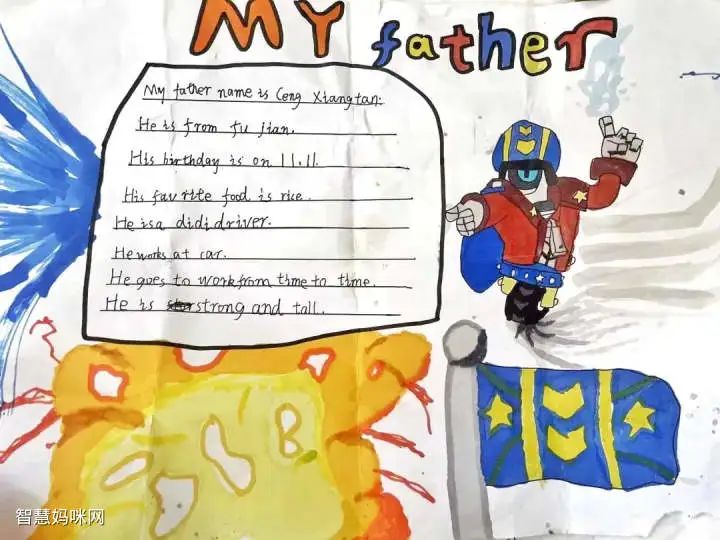 My father
My father name is Ceng Xiangtan.
He is from fu jian.
His birthday is on 11.11.
His favrite food is rice.
He is a didi driver.
He works at car.
He goes to work from time to time.
He is strong and tall.
B
智慧妈咪网